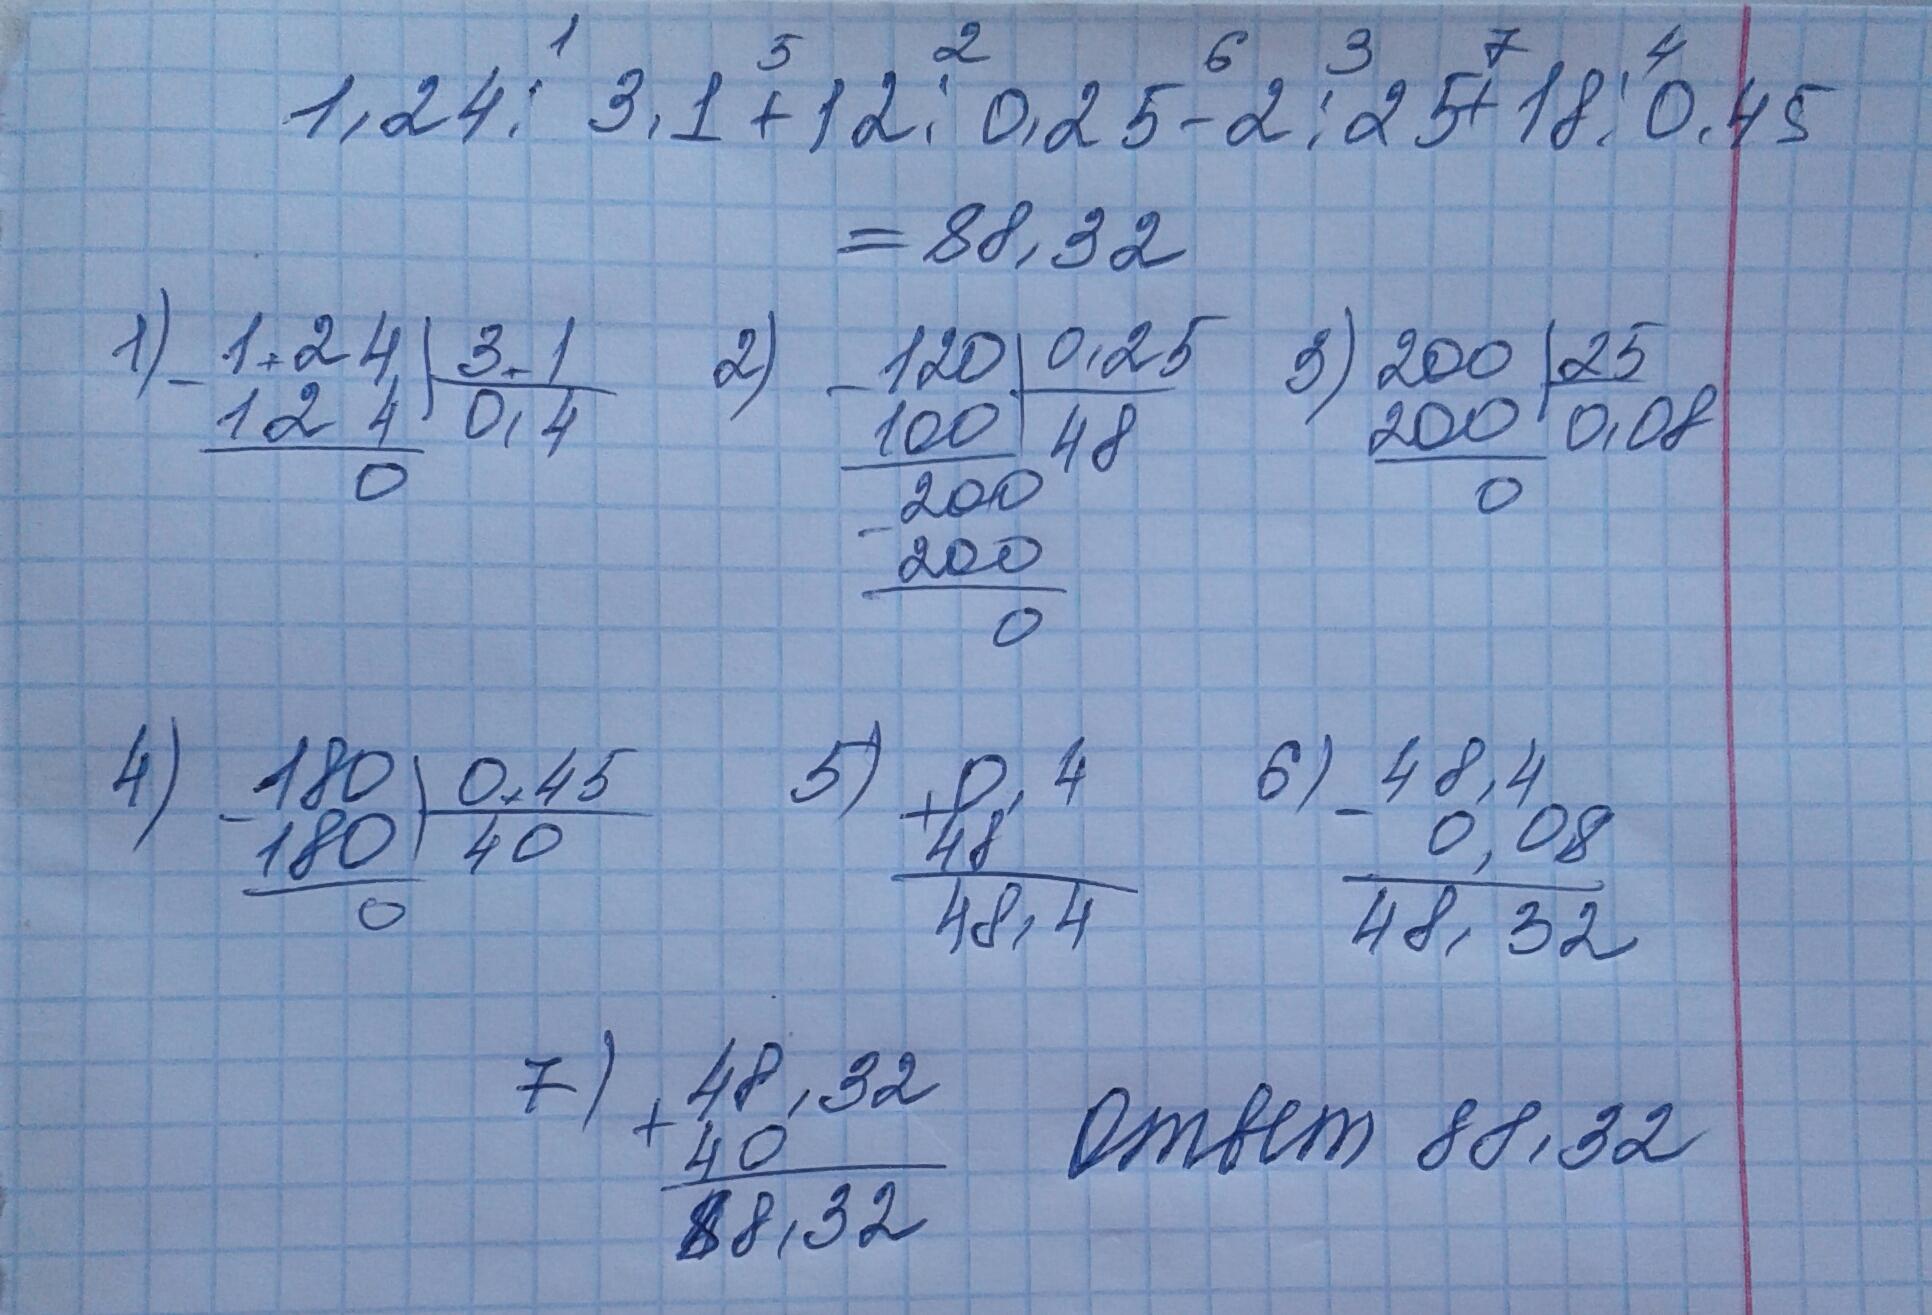 1 5 2 6 3 7 4
1,24 : 3,1 + 12 : 0,25 - 2 : 25 + 18 : 0,45
= 88,32
1) - 1,24 3,1 2) - 120 0,25 3) 200 25
124 0,4 100 48 200 0,08
0 - 200 0
200
0
4) - 180 0,45 5) + 0,4 6) - 48,4
180 40 48 0,08
0 48,4 48,32
7) + 48,32
40
88,32
Ответ 88,32